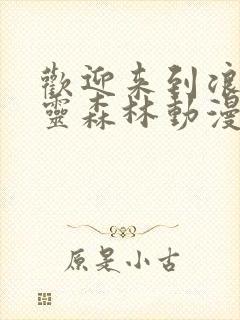 歡迎来到浪
靈森林動漫
原是小古